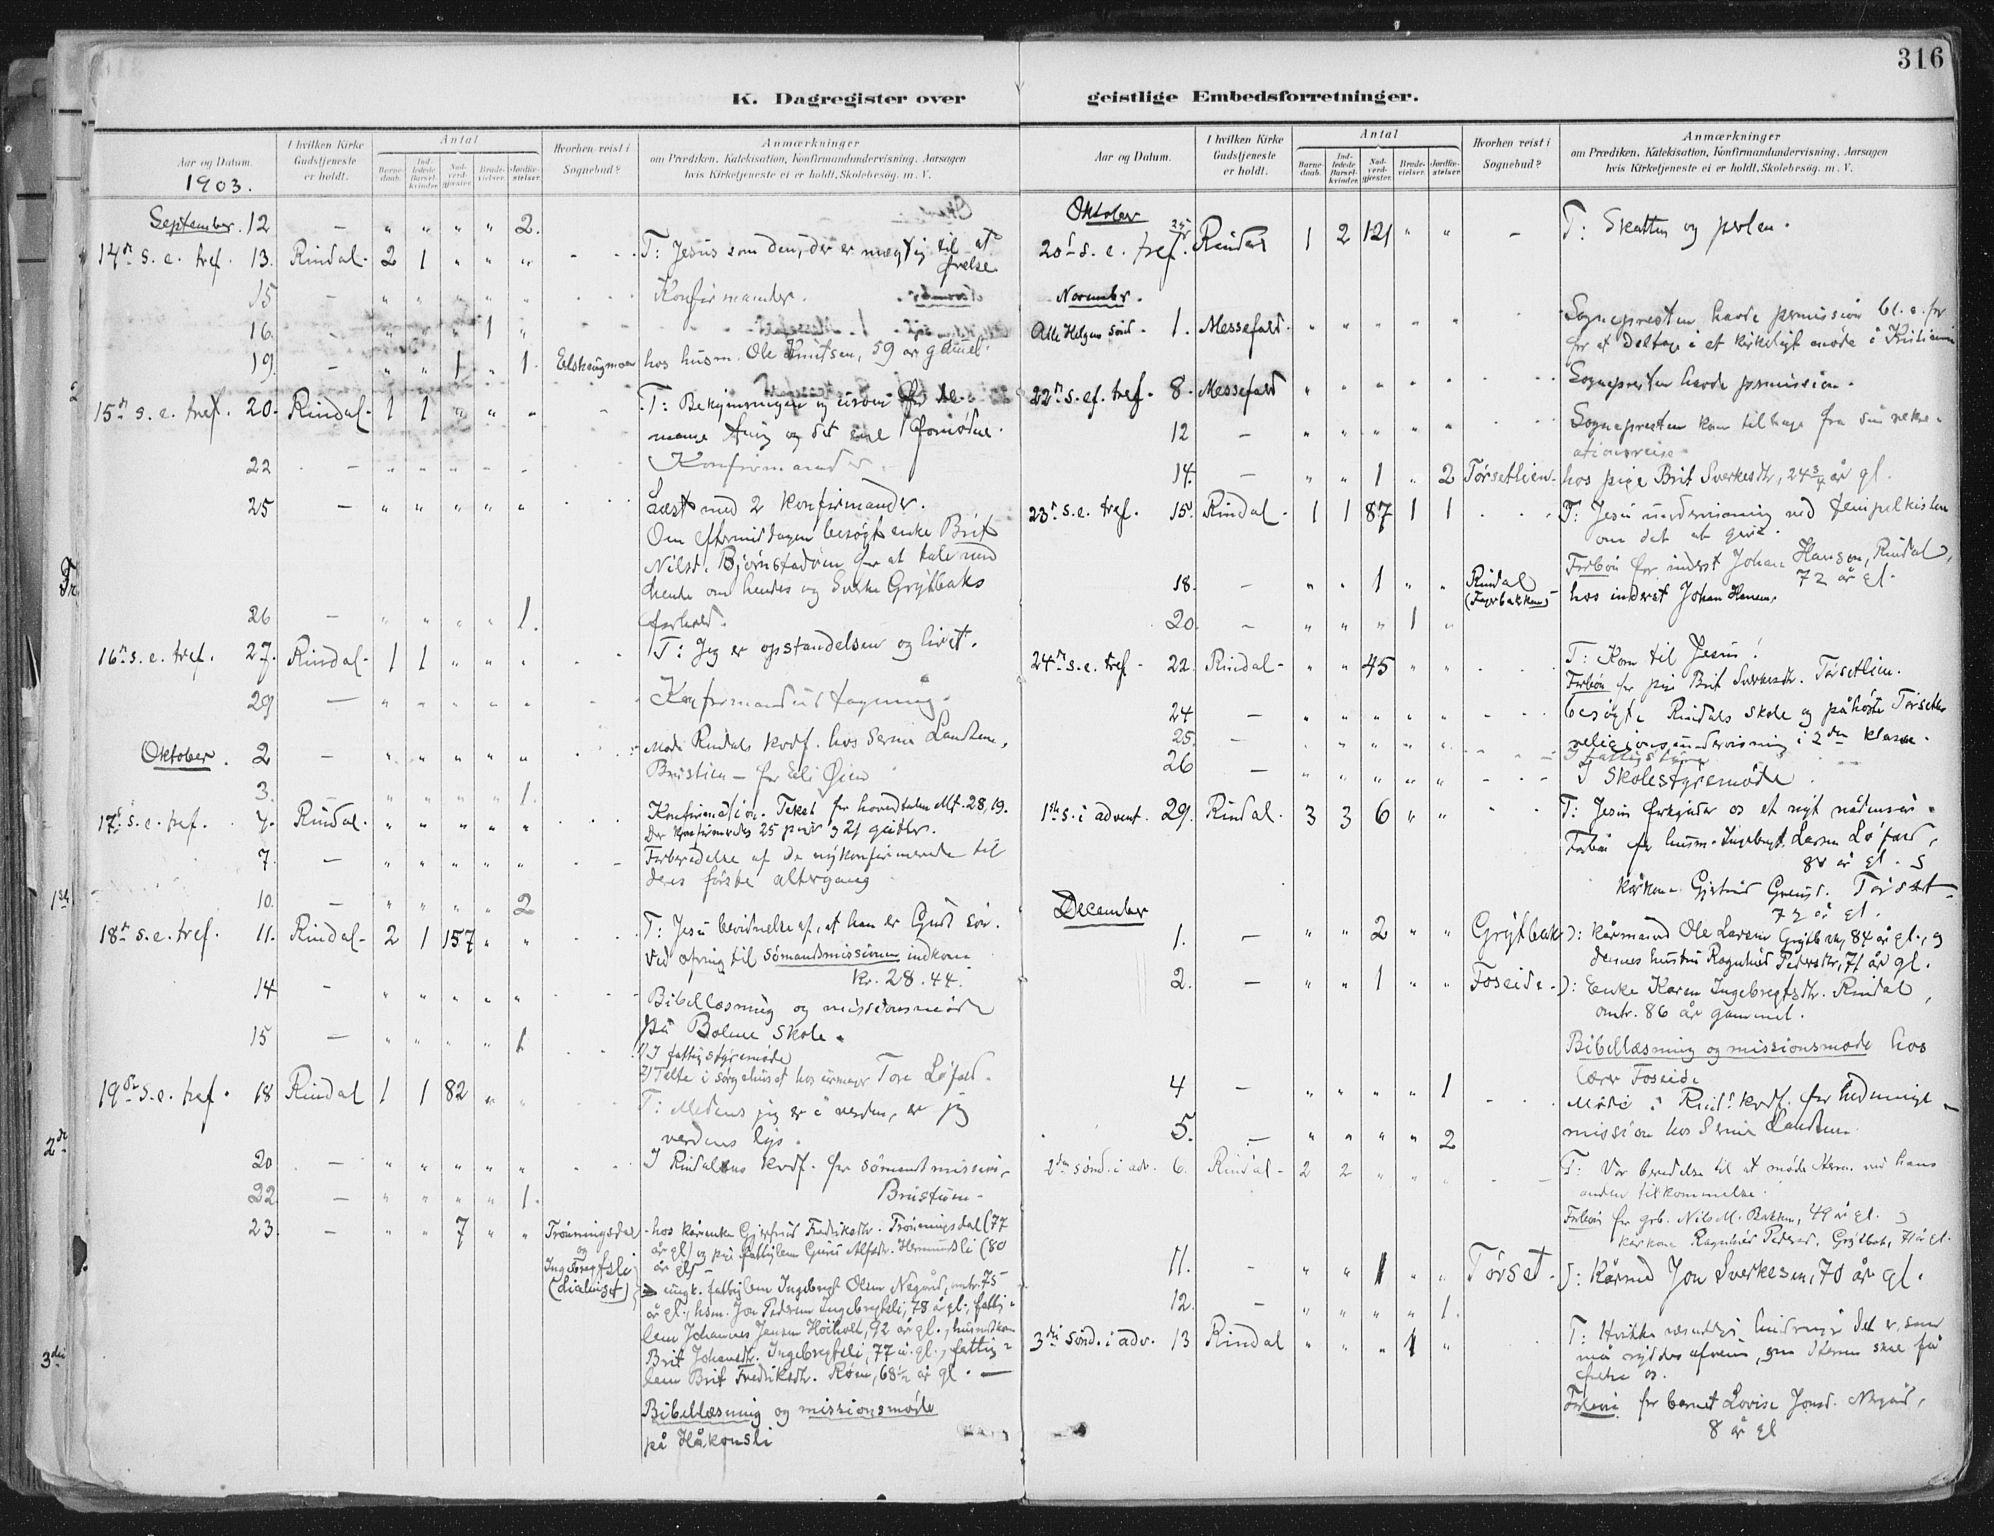 316
K. Dagregister over geistlige Embedsforretninger.
Aar og Datum. I hvilken Kirke Gudstjeneste er holdt. Antal Barnedaab. Indledede Barselkvinder. Nadverdgjæster. Brudevielser. Jordfæstelser. Hvorhen reist i Sognebud? Anmærkninger
om Prædiken, Katekisation, Konfirmandundervisning, Aarsagen
hvis Kirketjeneste ei er holdt, Skolebesøg, m. V.
1903.
September. 12 — " " " " 2.
14de s. e. tref. 13. Rindal - 2 1 " " " - T: Jesus som den, der er mægtig til at
15 — " " " " " Konfirmander.
16. — " " " 1 "
19. — " " 1 " 1. hos husm. Ole Knutsen, 59 år gammel.
15de s. e. tref. 20. Rindal - 1 1 " " " T: Bekymringen
mange ting og det ene fornødne.
22 — " " " " " Konfirmander.
25 — " " " " " Læst med 2 konfirmander.
Om eftermiddagen besøgt enke Brit
Nilsd. Bjørnstadøien for at tale med
hende om hendes og Sverke Grytbaks
26 — " " " " 1. forhold.
16de s. e. tref. 27. Rindal - 1 1 " " " T: Jeg er opstandelsen og livet.
29 — " " " " " Konfirmandudtagning.
Oktober. 2 — " " " " " Møde Rindals kvdf. hos Serine Landsem.
3. — " " " " 1.
17de s. e. tref. 4. Rindal. " " " " " Konfirmation. Tekst for hovedtalen Mt. 28,19.
Der konfirmeredes 25 piger og 21 gutter.
7. — " " " " " Forberedelse af de nykonfirmerede til
deres første altergang
10. — " " " " 2
18de s. e. tref. 11. Rindal - 2 1 157 " " T: Jesu bevidnelse af, at han er Guds søn.
Ved ofring til sømandsmissionen indkom
Kr. 28.44.
14 — " " " " " Bibellæsning og missionsmøde
på Bolme skole.
15 — " " " " 1 1) I fattigstyremøde
2) Talte i sørgehuset hos Tore Løfald.
19de s. e. tref. 18 Rindal 1 1 82 " " T: Medens jeg er i verden, er jeg
verdens lys.
20 — " " " " " I Rindalens kvdf. for sømandsmission,
22. — " " " " 1.
23. — " " 7 " " Trønningsdal og Ingebregtsli - hos kårenke Gjertrud Fredriksdtr. Trønningsdal (77
år gl) og på fattiglem Guru Alfsdtr. Hermundsli (80
år gl) —
ungk. fattiglem Ingebregt Olsen Negård, omtr. 75
år gl., hsm. Jon Pedersen Ingebregtsli, 78 år gl., fattig-
lem Johannes Jensen Høiholt, 92 år gl., husmdskone
Brit Johansdtr. Ingebregtsli, 77 å. gl., fattig-
lem Brit Fredriksdtr. Røen, 68½ år gl. —
Bibellæsning og missionsmøde
på Håkonsli
Aar og Datum. I hvilken Kirke Gudstjeneste er holdt. Antal Barnedaab. Indledede Barselkvinder. Nadverdgjæster. Brudevielser. Jordfæstelser. Hvorhen reist i Sognebud? Anmærkninger
om Prædiken, Katekisation, Konfirmandundervisning, Aarsagen
hvis Kirketjeneste ei er holdt, Skolebesøg, m. V.
Oktober
20de s. e. tref. 25 Rindal 1 2 121 " " — T: Skatten og perlen.
November.
Alle Helgens sønd. 1. Messefald. " " " " " Sognepresten havde permission bl. a. for
for at deltage i et kirkeligt møde i Kristiania
22de s. ef. tref. 8. Messefald " " " " " Sognepresten havde permission.
12 — " " " " " Sognepresten kom tilbage fra sin rekre-
ationsreise.
14. — " " 1 " 2 Tørsetlien. hos pige Brit Sverkesdtr., 24¾ år gl.
23de s. e. tref. 15. Rindal - 1 1 87 1 1 T: Jesu undervisning ved tempelkisten
om det at give.
Forbøn for inderst Johan Hansen, Rindal,
72 år gl.
18. — " " 1 " " Rindal hos inderst Johan Hansen.
20. — " " " 1 "
24de s. e. tref - 22. Rindal - " " 45 " " T: Kom til Jesus!
Forbøn for pige Brit Sverkesdtr. Tørsetlien.
24 — " " " " " besøgte Rindals skole og påhørte Tørseths
25. — " " " " " religionsundervisning i 2den klasse.
I fattigstyre
26 — " " " " " I skolestyremøde.
1ste s. i advent. 29. Rindal - 3 3 6 " " T: Jesus forkynder os et nyt nådensår.
Forbøn for husm. Ingebregt Larsen Løfald,
år gl.
kårkone Gjertrud Tørset
72 år gl.
December
1. — " " 2 " " Grytbak ): kårmand Ole Larsen Grytbak, 84 år gl., og
dennes hustru Ragnhild Pedersdtr., 71 år gl.
2. — " " 1 " " Foseide - ): Enke Karen Ingebregtsdtr. Rindal,
omtr. 86 år gammel.
Bibellæsning og missionsmøde hos
lærer Foseide
4 — " " " " 1 Møde i Rind. kvdf. for hedninge-
5. — " " " " 2 mission hos Serine Landsem.
2den sønd. i adv. 6. Rindal - 2 2 " " " T: Vor beredelse til at møde Herren ved hans
anden tilkommelse.
Forbøn for grb. Nils M. Bakken, 49 år gl. og
kårkone Ragnhild Pedersd. Grytbak, 71 år gl.
11. — " " 1 " " Tørset. ): Kårmd Jon Sverkesen, 70 år gl.
12. — " " " " 1.
3die sønd. i adv. 13 Rindal " " " 1 " T: Hvilke hindringer det er, som
må ryddes afveien, om Herren skal få
frelse os.
Forbøn for barnet Lovise Jonsd. Negård,
8 år gl